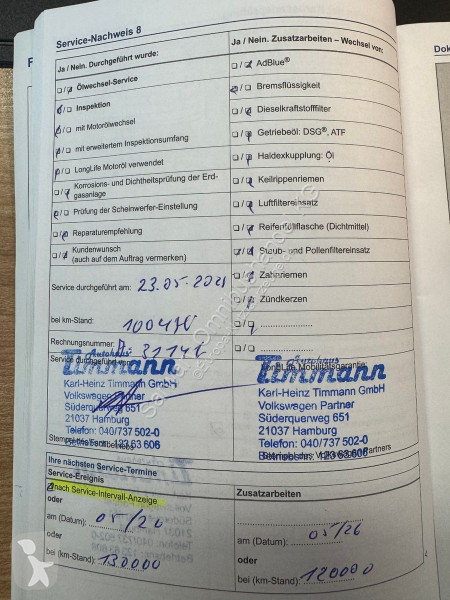 Service-Nachweis 8
Ja / Nein. Durchgeführt wurde:
Ölwechsel-Service
Inspektion
mit Motorölwechsel
mit erweitertem Inspektionsumfang
LongLife Motoröl verwendet
Korrosions- und Dichtheitsprüfung der Erd-
gasanlage
Prüfung der Scheinwerfer-Einstellung
Reparaturempfehlung
Kundenwunsch
(auch auf dem Auftrag vermerken)
Service durchgeführt am: 23.05-2021
bei km-Stand:
Rechnungsnummer:
Service durchgeführt von:
Autohaus
Timmann
Karl-Heinz Timmann GmbH
Volkswagen Partner
Süderquerweg 651
21037 Hamburg
Telefon: 040/737 502-0
123 63 606
Ja / Nein. Zusatzarbeiten – Wechsel von:
AdBlue®
Bremsflüssigkeit
Dieselkraftstofffilter
Getriebeöl: DSG®, ATF
Haldexkupplung: Öl
Keilrippenriemen
Luftfiltereinsatz
Reifenfüllflasche (Dichtmittel)
Staub- und Pollenfiltereinsatz
Zahnriemen
Zündkerzen
LongLife Mobilitätsgarantie:
Autohaus
Timmann
Karl-Heinz Timmann GmbH
Volkswagen Partner
Süderquerweg 651
21037 Hamburg
Telefon: 040/737 502-0
123 63 606
Ihre nächsten Service-Termine
Service-Ereignis
nach Service-Intervall-Anzeige
oder
am (Datum):
oder
bei (km-Stand): 130000
Zusatzarbeiten
am (Datum): 05/26
oder
bei (km-Stand): 120000
Dok